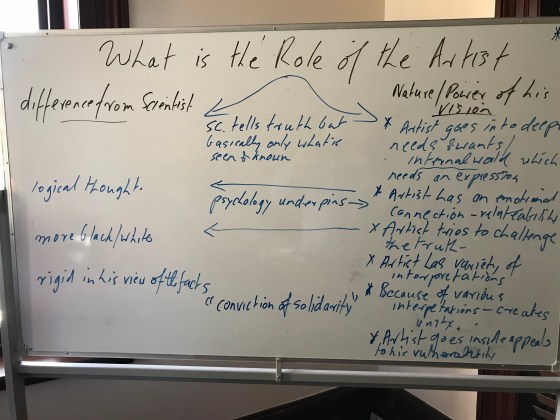 What is the Role of the Artist
difference from Scientist
logical thought.
more black/white
rigid in his view of the facts
SC. tells truth but
basically only what is
seen & known
psychology underpins →
"conviction of solidarity"
Nature/Power of his
VISION
* Artist goes into deep
needs & wants/
internal world which
needs an expression
* Artist has an emotional
connection - relateability
* Artist tries to challenge
the truth -
* Artist has variety of
interpretations
* Because of various
interpetations - creates
unity.
* Artist goes inside appeals
to his vulnerability